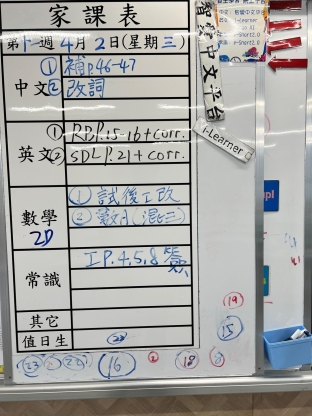 家課表
第十一週 4月2日(星期三)
中文 ① 補p.46-47
② 改詞
英文 ① RBP.15-16+corr.
② SDLP.21+corr.
數學 ① 試後工改
2D ② 數A(混三)
常識 I P.4,5,8
其它
值日生 23
智愛中文平台
i-Learner
23 22 16 18 15 19